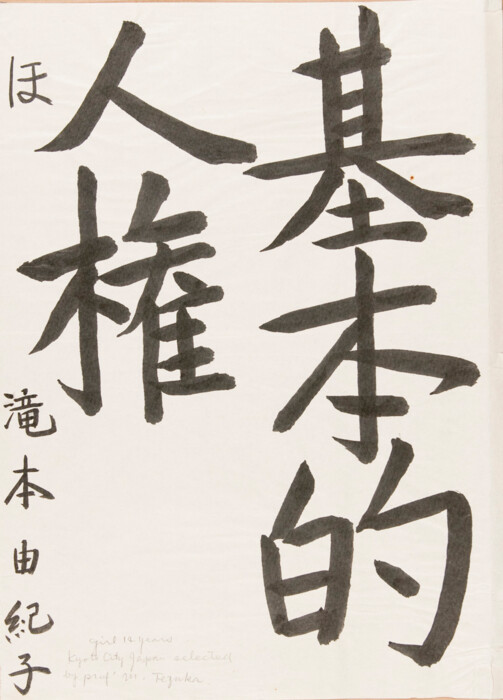 基本的
人権
ほ 滝本由紀子
girl 14 years
Kyoto City Japan selected
by prof.